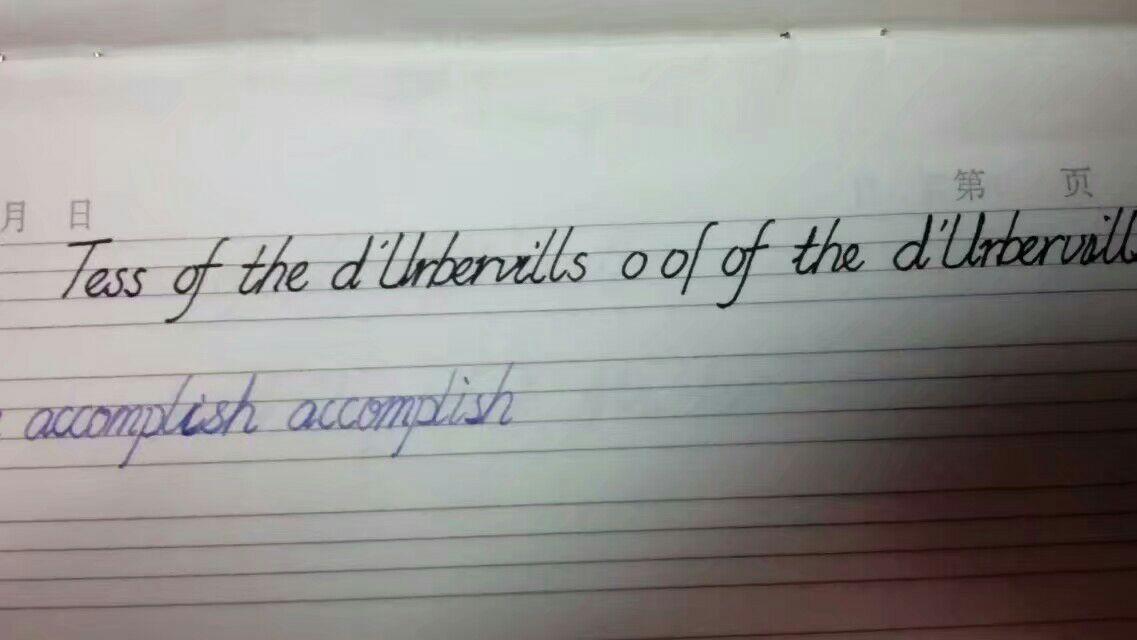 月 日 第 页
Tess of the d'Urbervills o of of the d'Urbervill
accomplish accomplish